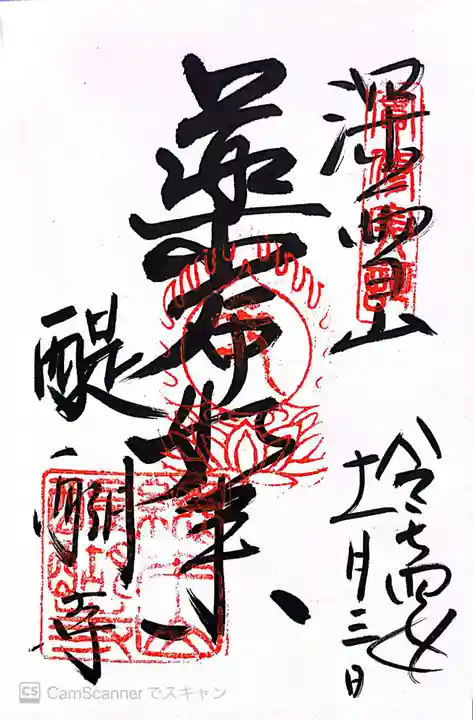 深雪山
薬師如来
醍醐寺
令和四年
十一月三日
CS CamScanner でスキャン